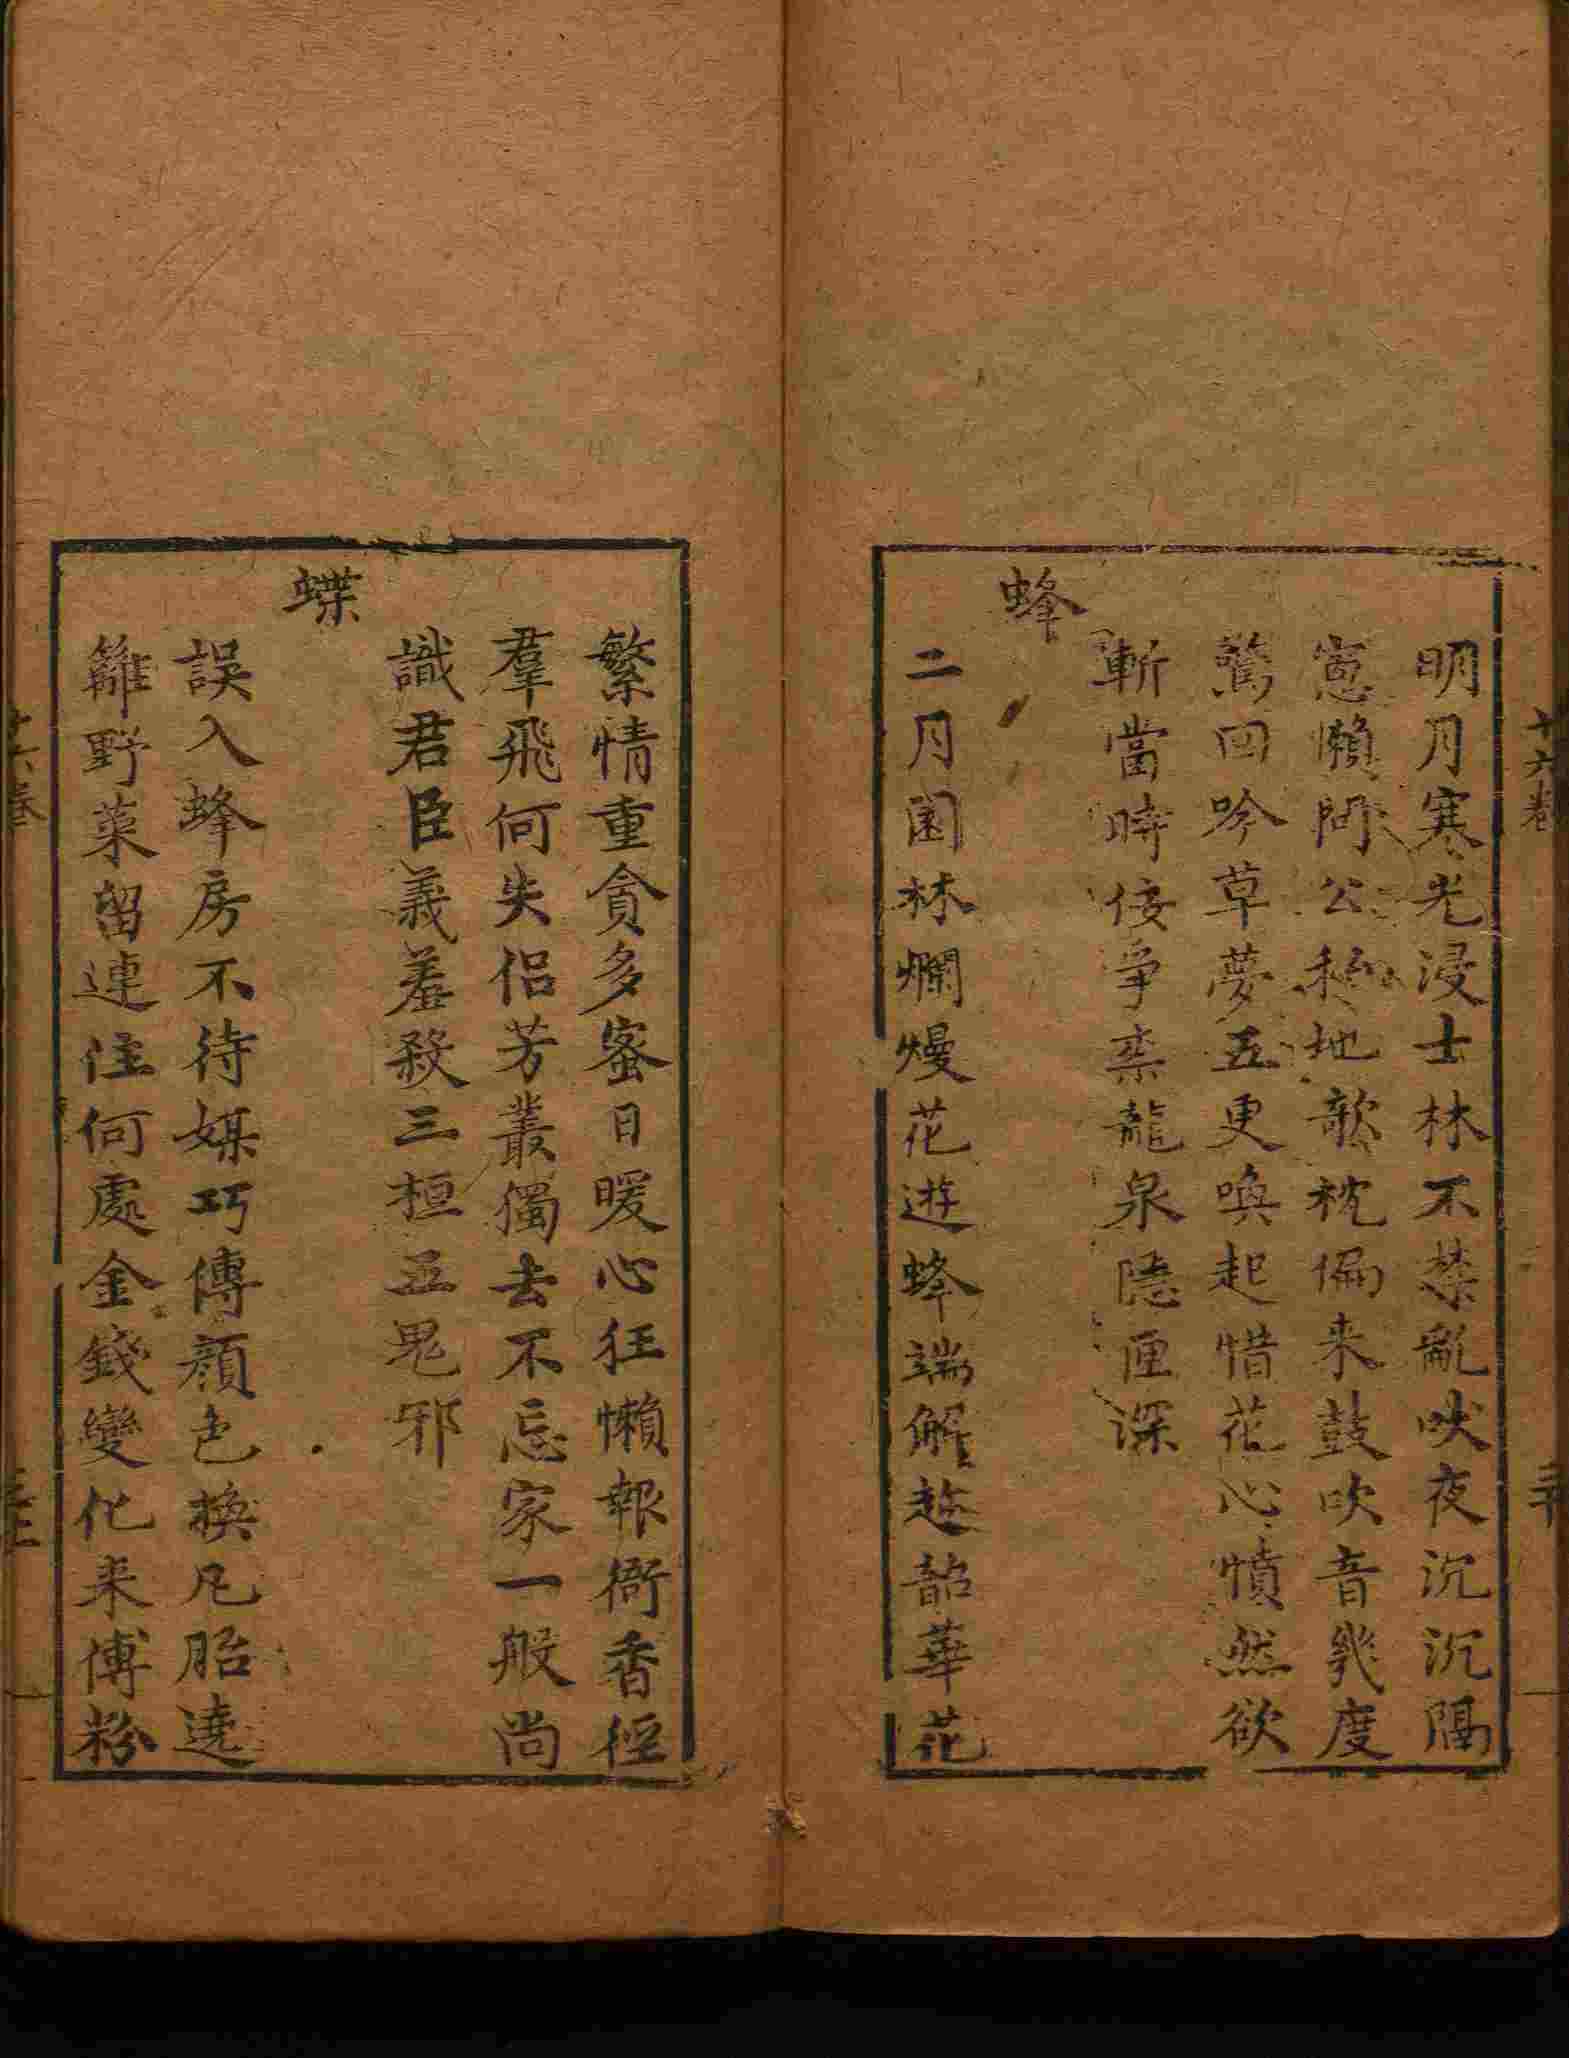 十六卷
三十
明月寒光浸士林不禁亂吠夜沉沉隔
窻懶問公私地欹枕偏来鼓吹音幾度
驚回吟草夢五更喚起惜花心憤然欲
斬當時佞爭柰龍泉隱匣深
蜂
二月園林爛熳花遊蜂端解趂韶華花
繁情重貪多蜜日暖心狂懶報衙香徑
羣飛何失侣芳叢獨去不忘家一般尚
識君臣義羞殺三桓五鬼邪
蝶
誤入蜂房不待媒巧傳顔色換凡胎遶
籬野菜留連住何處金錢變化来傅粉
十六卷